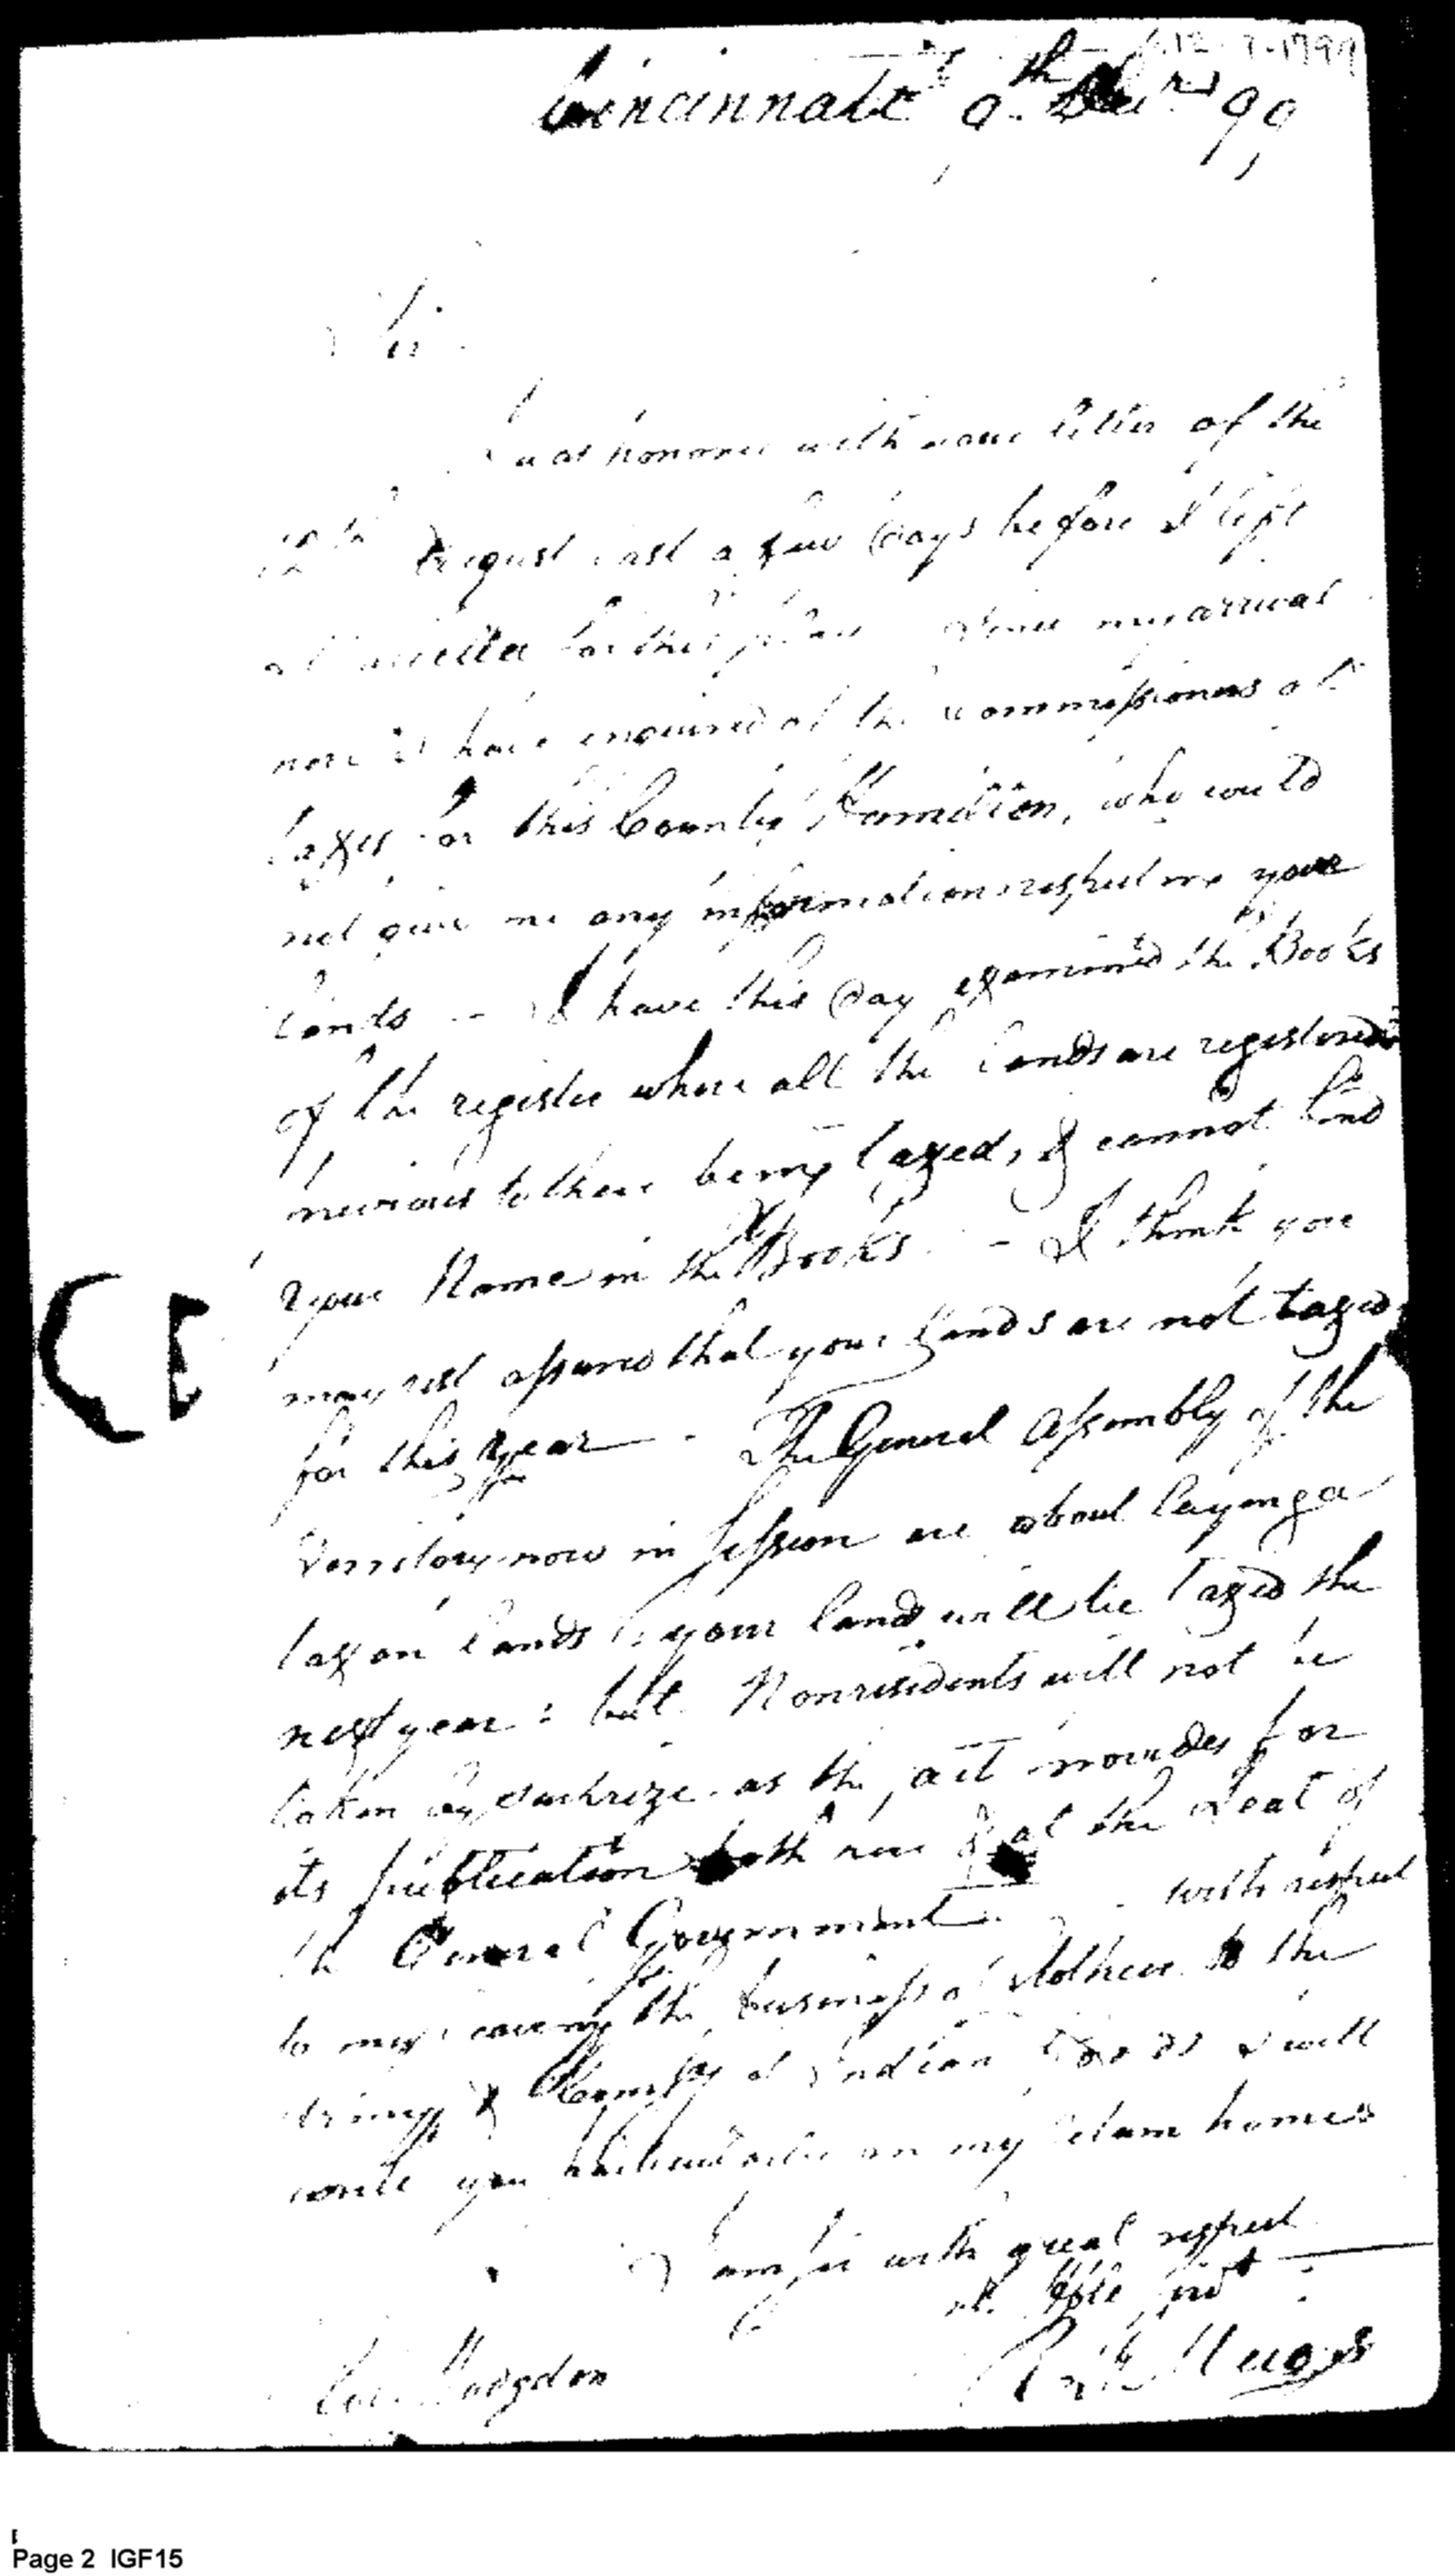 12-9-1799
Cincinnati 9th Decr 99
Sir
I was honored with your letter of the
12th August last a few Days before I left
Marietta for this place Since my arrival
here I have enquired of the Commissioners of
taxes for this County Hamilton, who could
not give me any information respecting your
Lands -- I have this Day examined the Books
of the register where all the Lands are registered
previous to there being taxed, & cannot find
your Name in the Books - I think you
may rest assured that your Lands are not taxed
for this year - The General Assembly of the
Territory now in Session are about laying a
tax on Lands & your Land will be Taxed the
next year : but Nonresidents will not be
taken by surprize as the act provides for
its publication both here & at the Seat of
the General Government - with respect
to my the business of the
& of Indian Goods I will
write you on my return home
I am Sir with great respect
Col. Hodgdon